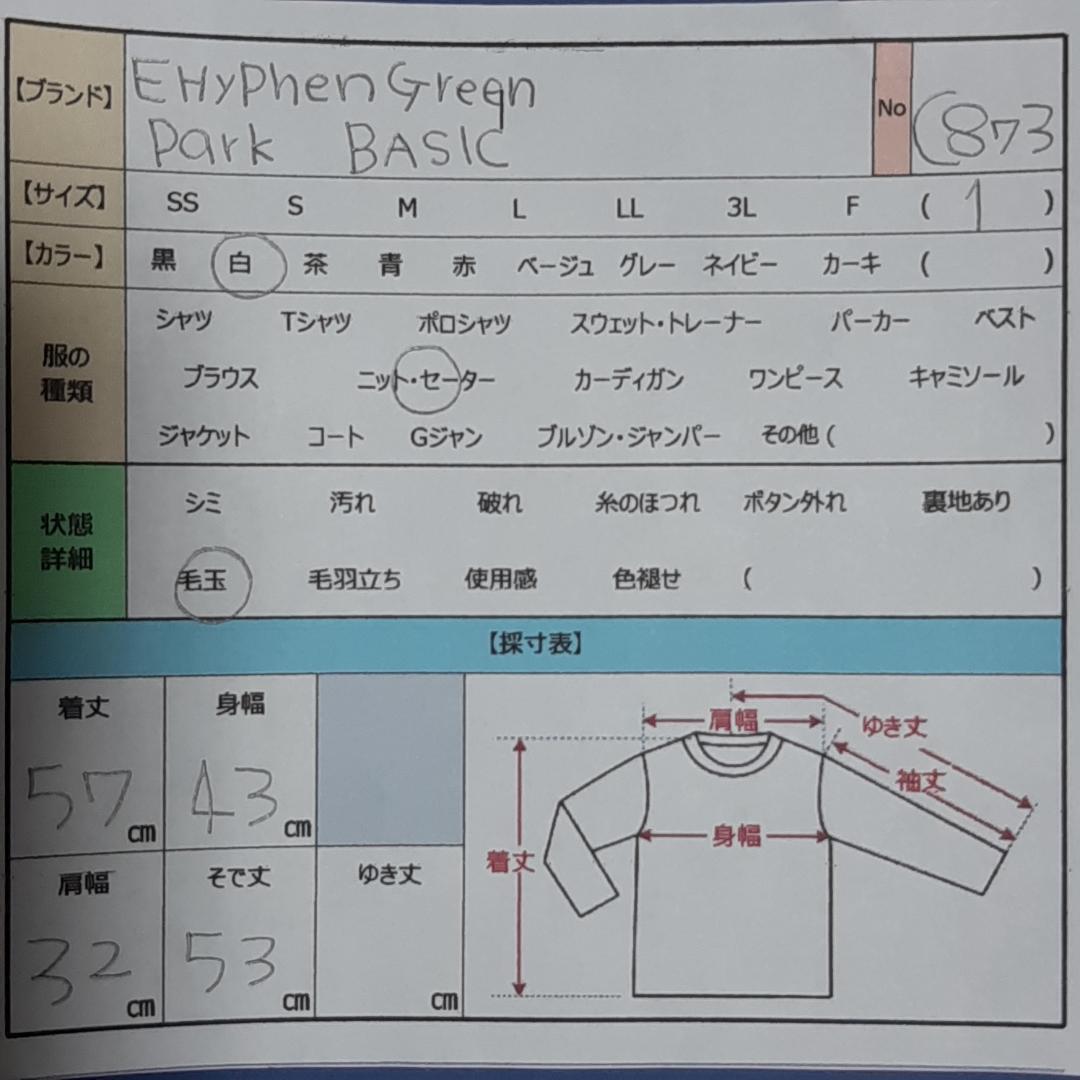 【ブランド】 EHyPhen Green Park BASIC No (873
【サイズ】 SS S M L LL 3L F ( 1 )
【カラー】 黒 白 茶 青 赤 ベージュ グレー ネイビー カーキ ( )
服の種類
シャツ Tシャツ ポロシャツ スウェット・トレーナー パーカー ベスト
ブラウス ニット・セーター カーディガン ワンピース キャミソール
ジャケット コート Gジャン ブルゾン・ジャンパー その他 ( )
状態詳細
シミ 汚れ 破れ 糸のほつれ ボタン外れ 裏地あり
毛玉 毛羽立ち 使用感 色褪せ ( )
【採寸表】
着丈 身幅
57 cm 43 cm
肩幅 そで丈 ゆき丈
32 cm 53 cm cm
肩幅 ゆき丈
袖丈
身幅
着丈